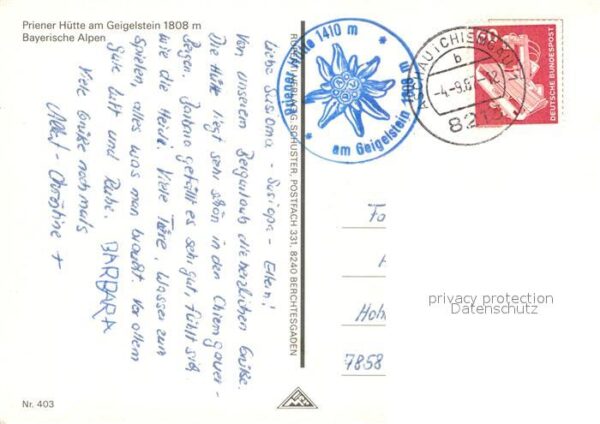 Priener Hütte am Geigelstein 1808 m
Bayerische Alpen
Liebe Susioma - Susiopa - Eltern!
Von unserem Bergurlaub die herzlichen Grüße.
Die Hütte liegt sehr schön in den Chiemgauer-
Bergen. Barbara gefällt es sehr gut, fühlt sich
wie die Heidi. Viele Tiere, Wasser zum
Spielen, alles was man braucht. Vor allem
gute Luft und Ruhe.
BARBARA
Viele Grüße nochmals
Albert - Christine +
RUDOLF VERLAG SCHUSTER, POSTFACH 331, 8240 BERCHTESGADEN
Priener Hütte 1410 m
am Geigelstein 1808 m
ASCHAU I CHIEMGAU
b
-4.-9.87-12
8213
DEUTSCHE BUNDESPOST
Hohn
7858
privacy protection
Datenschutz
Nr. 403